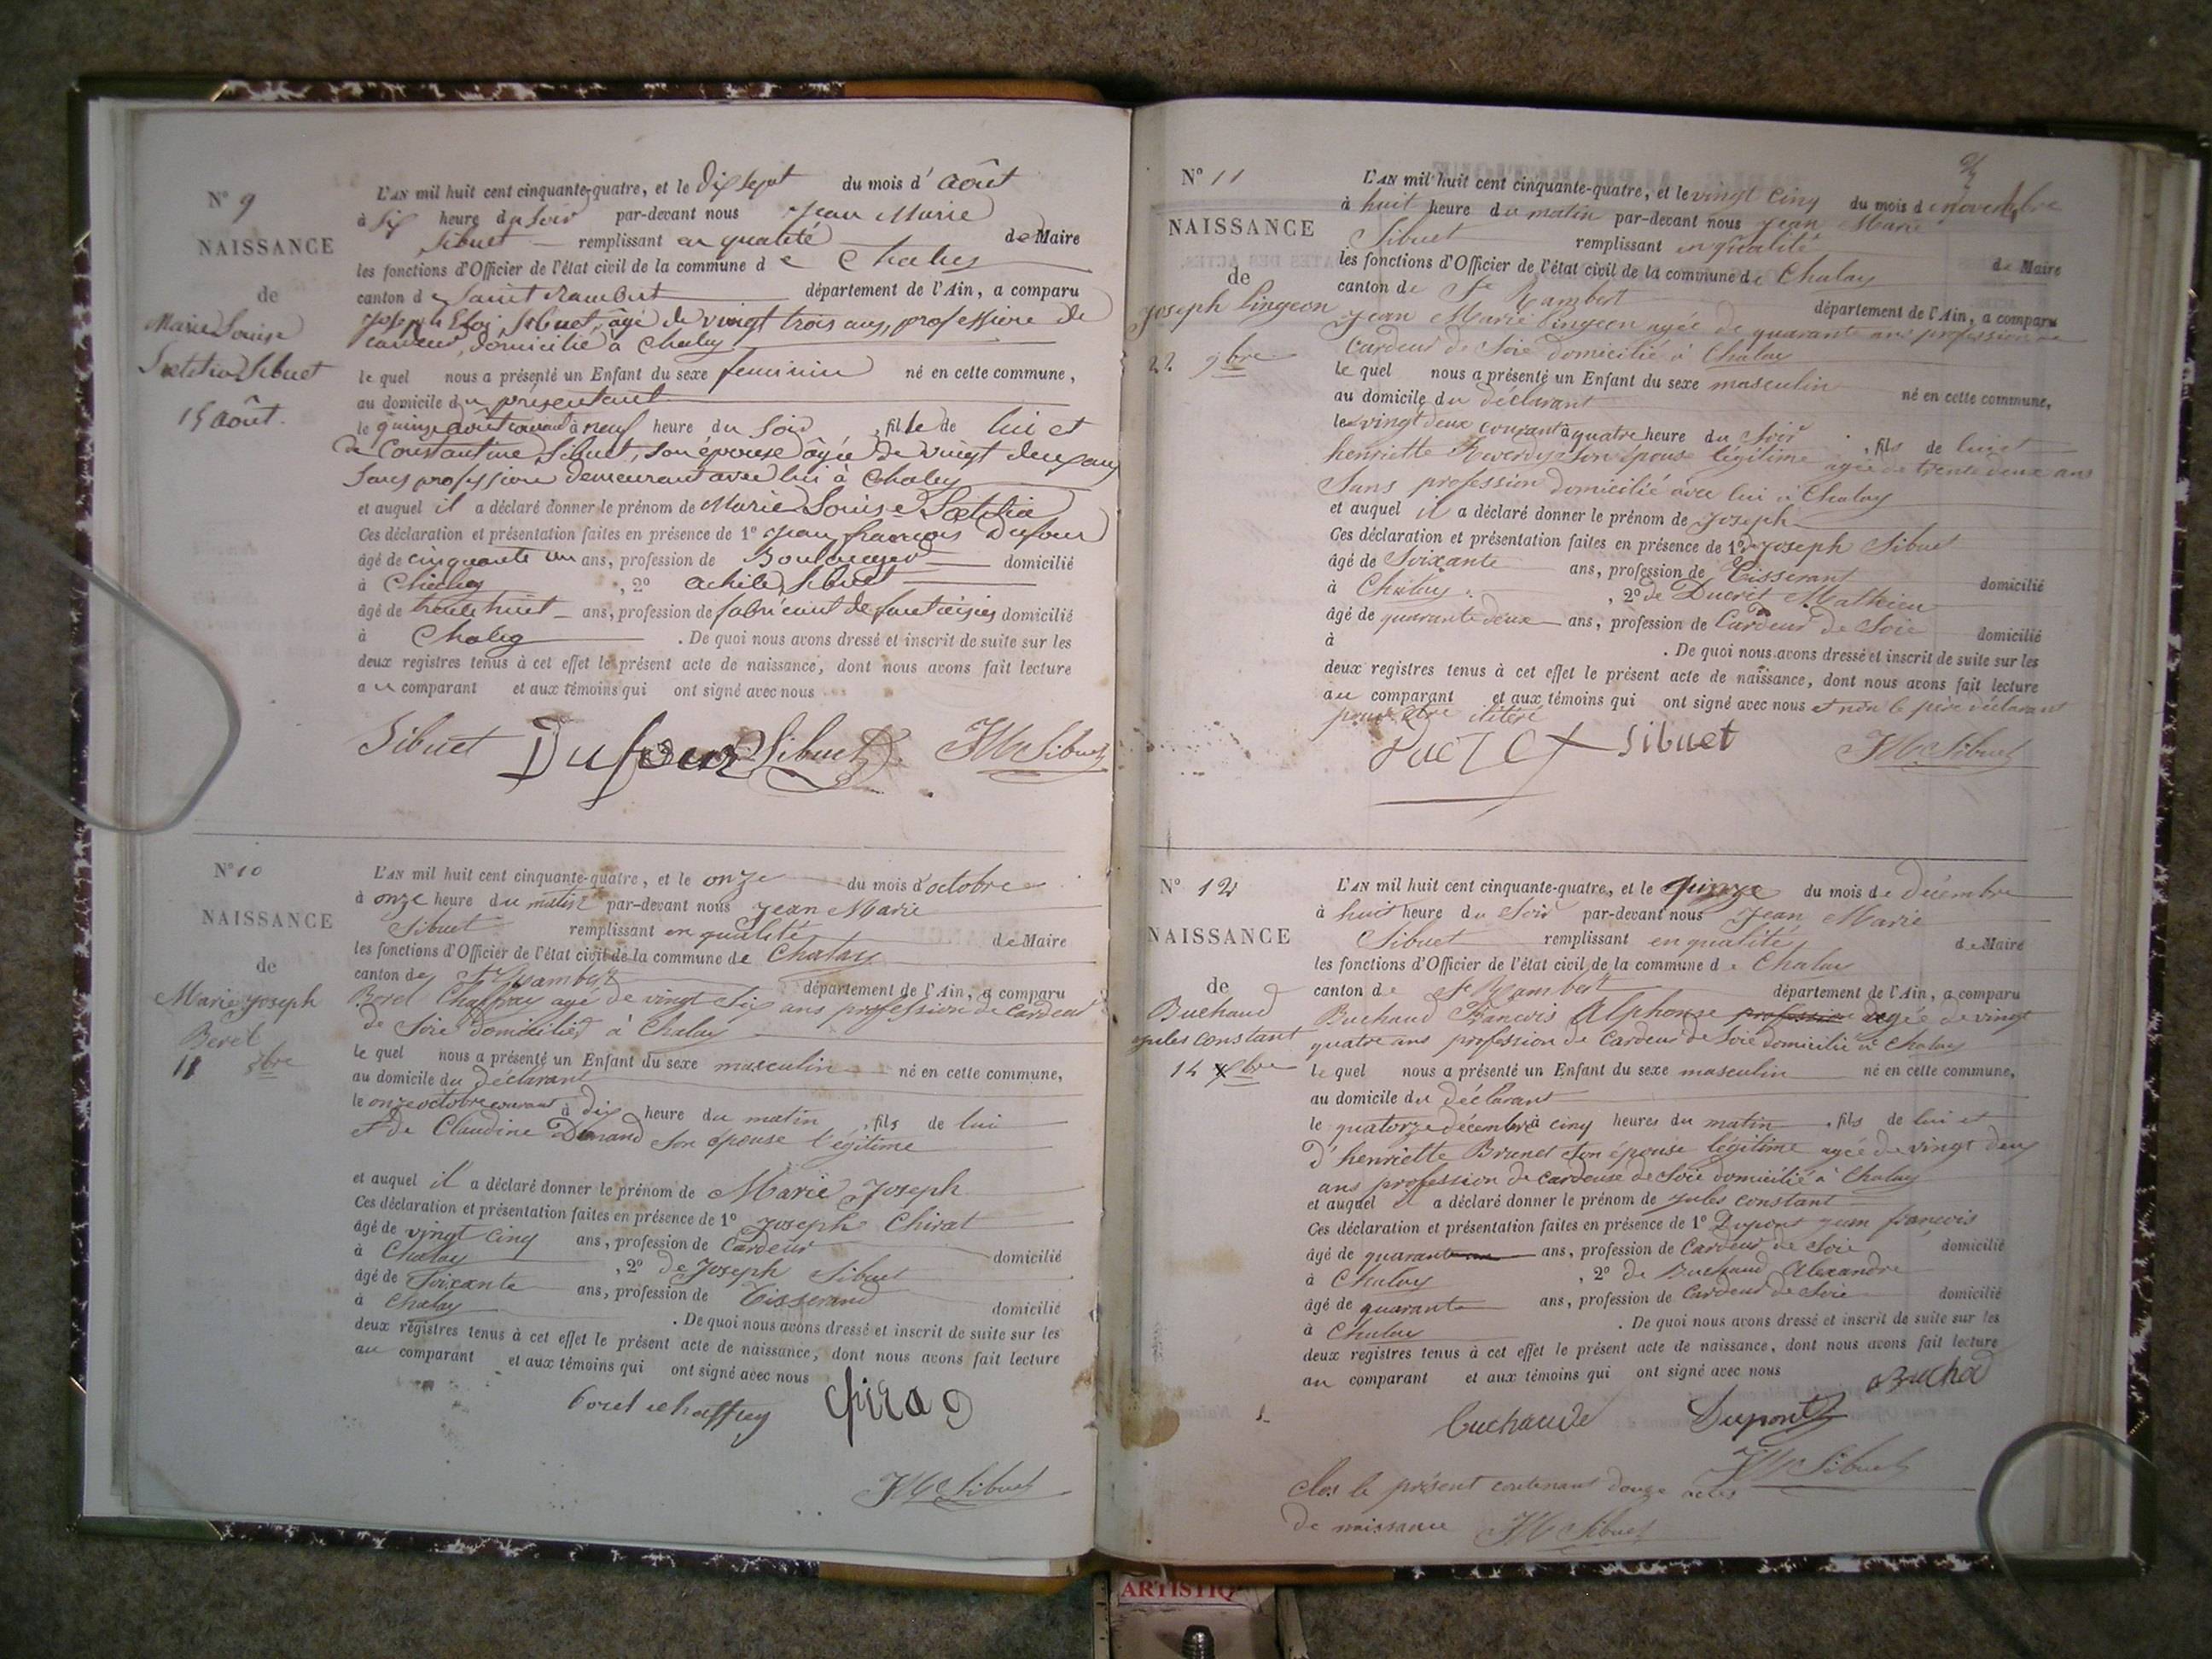 N° 9
NAISSANCE
de
Marie Louise
Lætitia Sibuet
15 Août.
L'AN mil huit cent cinquante-quatre, et le dix sept du mois d' Août
à six heure du soir par-devant nous Jean Marie
Sibuet remplissant en qualité de Maire
les fonctions d'Officier de l'état civil de la commune de Chaley
canton de Saint Rambert département de l'Ain, a comparu
Joseph Eloi Sibuet, âgé de vingt trois ans, profession de
cardeur, domicilié à Chaley
le quel nous a présenté un Enfant du sexe feminin né en cette commune,
au domicile du presentant
le quinze août courant à neuf heure du soir , fille de lui et
de Constantine Sibuet, son épouse âgée de vingt deux ans
sans profession demeurant avec lui à Chaley
et auquel il a déclaré donner le prénom de Marie Louise Lætitia
Ces déclaration et présentation faites en présence de 1° Jean françois Dufour
âgé de cinquante un ans, profession de Boulanger domicilié
à Chaley , 2° achile Sibuet
âgé de trente huit ans, profession de fabricant de fantaisies domicilié
à Chaley . De quoi nous avons dressé et inscrit de suite sur les
deux registres tenus à cet effet le présent acte de naissance, dont nous avons fait lecture
au comparant et aux témoins qui ont signé avec nous
Sibuet Dufour Sibuet JM Sibuet
N° 10
NAISSANCE
de
Marie Joseph
Beret
11 8bre
L'AN mil huit cent cinquante-quatre, et le onze du mois d'octobre
à onze heure du matin par-devant nous Jean Marie
Sibuet remplissant en qualité de Maire
les fonctions d'Officier de l'état civil de la commune de Chalay
canton de St Rambert département de l'Ain, a comparu
Beret Chaffray agé de vingt six ans profession de Cardeur
de Soie domicilié à Chalay
le quel nous a présenté un Enfant du sexe masculin né en cette commune,
au domicile du déclarant
le onze octobre courant à dix heure du matin , fils de lui
et de Claudine Durand son épouse légitime
et auquel il a déclaré donner le prénom de Marie Joseph
Ces déclaration et présentation faites en présence de 1° Joseph Chirat
âgé de vingt cinq ans, profession de Cardeur domicilié
à Chalay , 2° de Joseph Sibuet
âgé de Soixante ans, profession de Tisserand domicilié
à Chalay . De quoi nous avons dressé et inscrit de suite sur les
deux registres tenus à cet effet le présent acte de naissance, dont nous avons fait lecture
au comparant et aux témoins qui ont signé avec nous
JM Sibuet
N° 11
NAISSANCE
de
Joseph Pingeon
22 9bre
L'AN mil huit cent cinquante-quatre, et le vingt cinq du mois de novembre
à huit heure du matin par-devant nous Jean Marie
Sibuet remplissant en qualité de Maire
les fonctions d'Officier de l'état civil de la commune de Chalay
canton de St Rambert département de l'Ain, a comparu
Jean Marie Pingeon agée de quarante ans profession de
Cardeur de Soie domicilié à Chalay
le quel nous a présenté un Enfant du sexe masculin né en cette commune,
au domicile du déclarant
le vingt deux courant à quatre heure du Soir , fils de lui et
henriette son épouse légitime agée de trente deux ans
Sans profession domicilié avec lui à Chalay
et auquel il a déclaré donner le prénom de Joseph
Ces déclaration et présentation faites en présence de 1° de Joseph Sibuet
âgé de Soixante ans, profession de Tisserant domicilié
à Chalay , 2° de Ducret Mathieu
âgé de quarante deux ans, profession de Cardeur de Soie domicilié
à . De quoi nous avons dressé et inscrit de suite sur les
deux registres tenus à cet effet le présent acte de naissance, dont nous avons fait lecture
au comparant et aux témoins qui ont signé avec nous et non le père déclarant
pour être iltéré
Sibuet JM Sibuet
N° 12
NAISSANCE
de
Buchaud
Jules constant
14 xbre
L'AN mil huit cent cinquante-quatre, et le quinze du mois de Décembre
à huit heure du Soir par-devant nous Jean Marie
Sibuet remplissant en qualité de Maire
les fonctions d'Officier de l'état civil de la commune de Chalay
canton de St Rambert département de l'Ain, a comparu
Buchaud François Alphonse profession agée de vingt
quatre ans profession de Cardeur de Soie domicilié à Chalay
le quel nous a présenté un Enfant du sexe masculin né en cette commune,
au domicile du déclarant
le quatorze décembre à cinq heures du matin , fils de lui et
d'henriette Brunet son épouse légitime agée de vingt deux
ans profession de cardeuse de Soie domicilié à Chalay
et auquel il a déclaré donner le prénom de Jules constant
Ces déclaration et présentation faites en présence de 1° Dupont jean françois
âgé de quarante ans, profession de Cardeur de Soie domicilié
à Chalay , 2° de Buchaud Alexandre
âgé de quarante ans, profession de Cardeur de Soie domicilié
à Chalay . De quoi nous avons dressé et inscrit de suite sur les
deux registres tenus à cet effet le présent acte de naissance, dont nous avons fait lecture
au comparant et aux témoins qui ont signé avec nous
Buchaude Dupont
JM Sibuet
Clos le présent contenant douze actes
de naissance JM Sibuet
ARTISTIQ